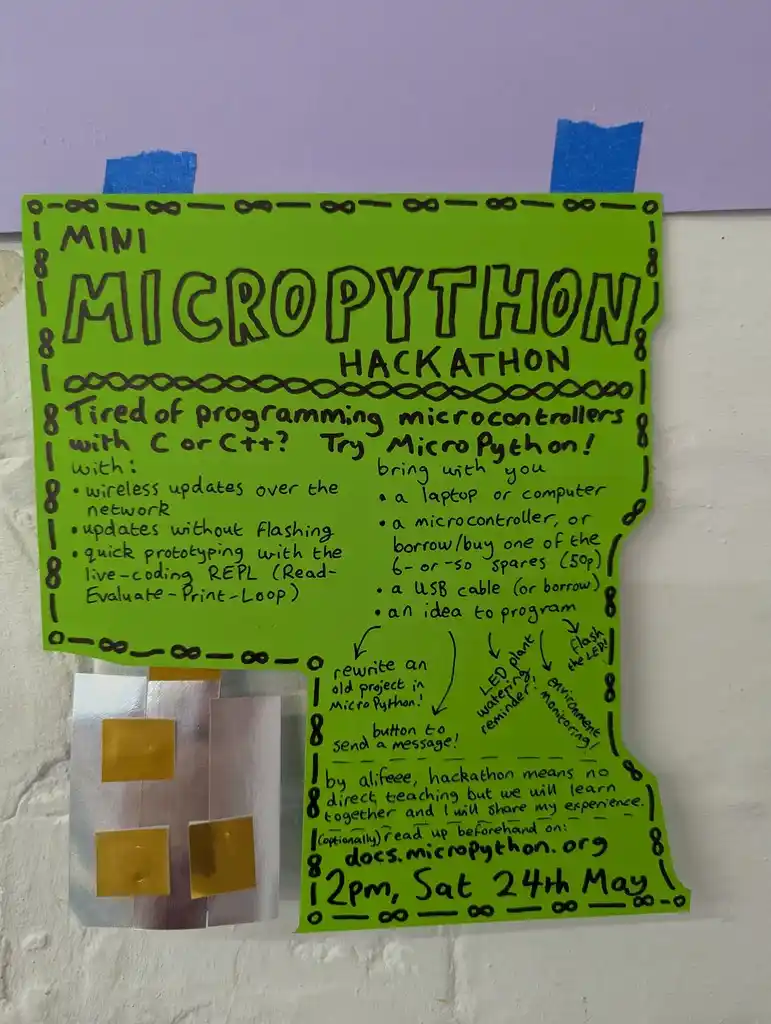 MINI
MICROPYTHON
HACKATHON
Tired of programming microcontrollers
with C or C++? Try MicroPython!
with:
• wireless updates over the
network
• updates without flashing
• quick prototyping with the
live-coding REPL (Read-
Evaluate-Print-Loop)
bring with you
• a laptop or computer
• a microcontroller, or
borrow/buy one of the
6-or-so spares (50p)
• a USB cable (or borrow)
• an idea to program
rewrite an
old project in
MicroPython!
button to
send a message!
LED plant
watering
reminder!
environment
monitoring!
flash
the LED!
by alifeee, hackathon means no
direct teaching but we will learn
together and I will share my experience.
(optionally) read up beforehand on:
docs.micropython.org
2pm, Sat 24th May